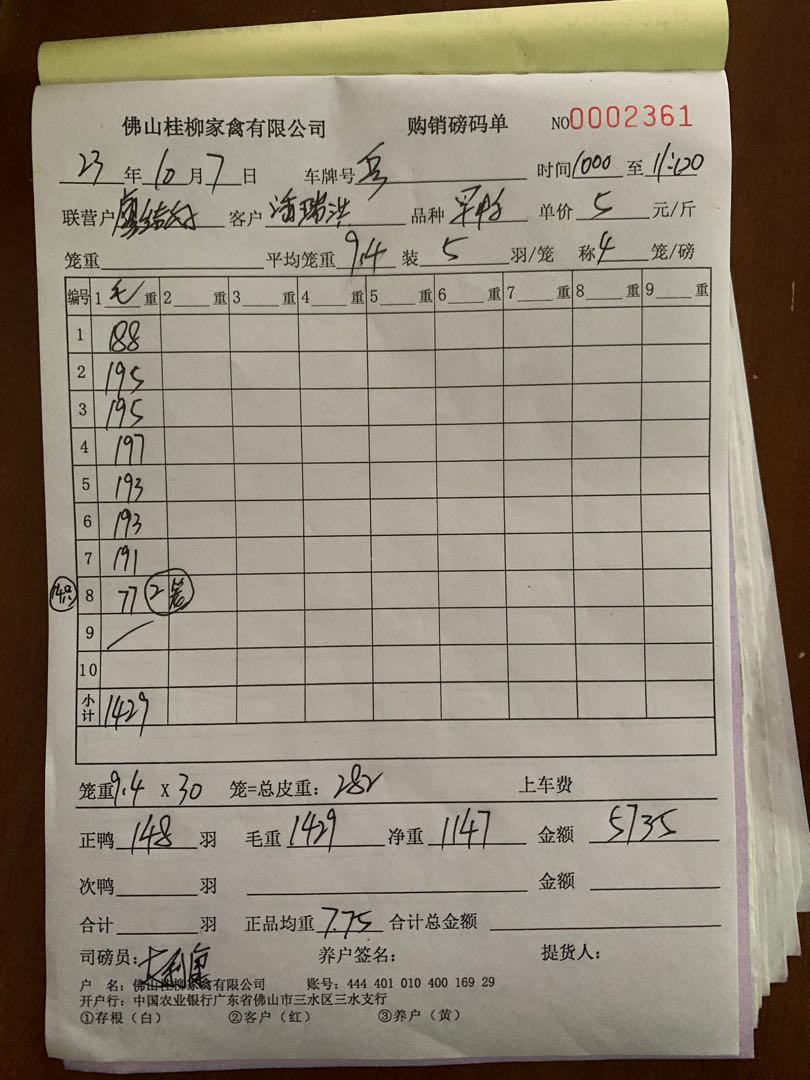 佛山桂柳家禽有限公司 购销磅码单 NO0002361
23年10月7日 车牌号 时间1000至11:20
联营户 客户潘瑞洪 品种 单价5元/斤
笼重 平均笼重9.4装5羽/笼 称4笼/磅
编号 1毛重 2重 3重 4重 5重 6重 7重 8重 9重
1 188
2 195
3 195
4 197
5 193
6 193
7 191
8 77 2笼
9
10
小计 1429
笼重9.4 X 30 笼=总皮重:282 上车费
正鸭148羽 毛重1429 净重1147 金额5735
次鸭 羽 金额
合计 羽 正品均重7.75 合计总金额
司磅员: 养户签名: 提货人:
户 名:佛山桂柳家禽有限公司 账号:444 401 010 400 169 29
开户行:中国农业银行广东省佛山市三水区三水支行
①存根(白) ②客户(红) ③养户(黄)